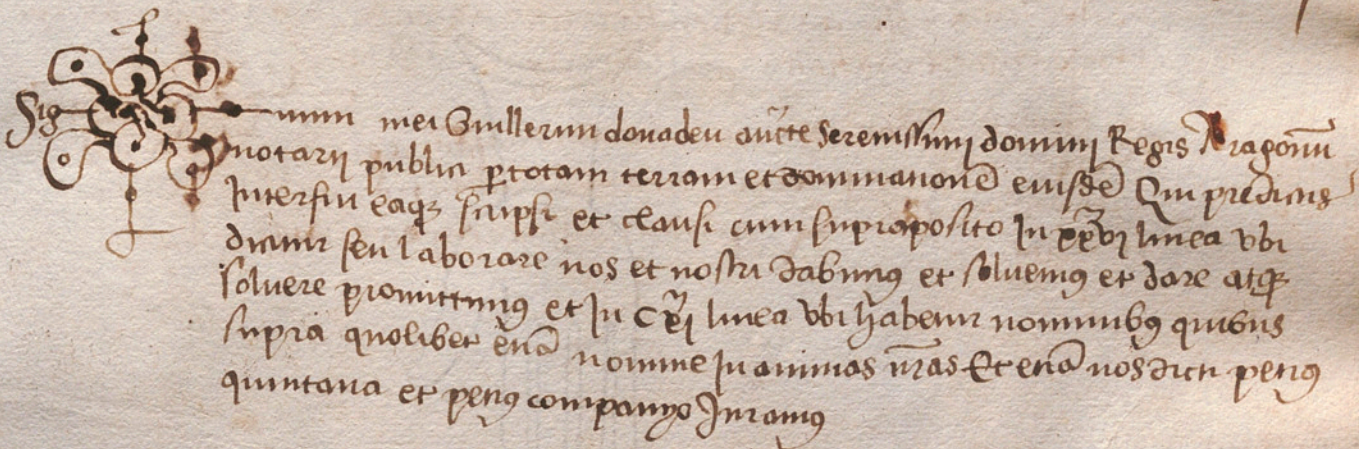 Sig num mei Guillermi donadeu aucte Serenissimi domini Regis Aragonū
notarii publici ꝑ totam terram et dominationē eiusdē Qui predictis
Interfui eaqꝫ scripsi et clausi cum supraposito In xxvj linea vbi
dicitur seu laborare nos et nostri dabimꝰ et soluemꝰ et dare atqꝫ
soluere promittimꝰ et In Cxj linea vbi habetur nominibꝰ quibus
supra quolibet etiā nomine In animas nr̄as Et etiā nos dicti petrꝰ
quintana et petrꝰ companyo Juramꝰ